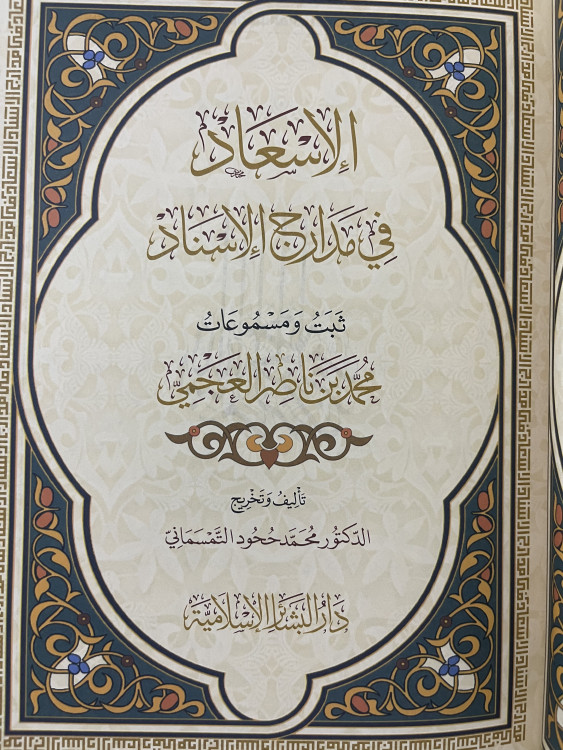 الإسعاد
في مَدارج الإسناد
ثَبَتُ وَمَسْمُوعَاتُ
مُحَمَّد بَن نَاصِر العَجْمِيّ
تَأْلِيفُ وَتَخْرِيج
الدّكتُور مُحَمَّد حُحُود التَّمْسَمَانِيّ
دَارُ البَشَائِر الإسْلَامِيَّة